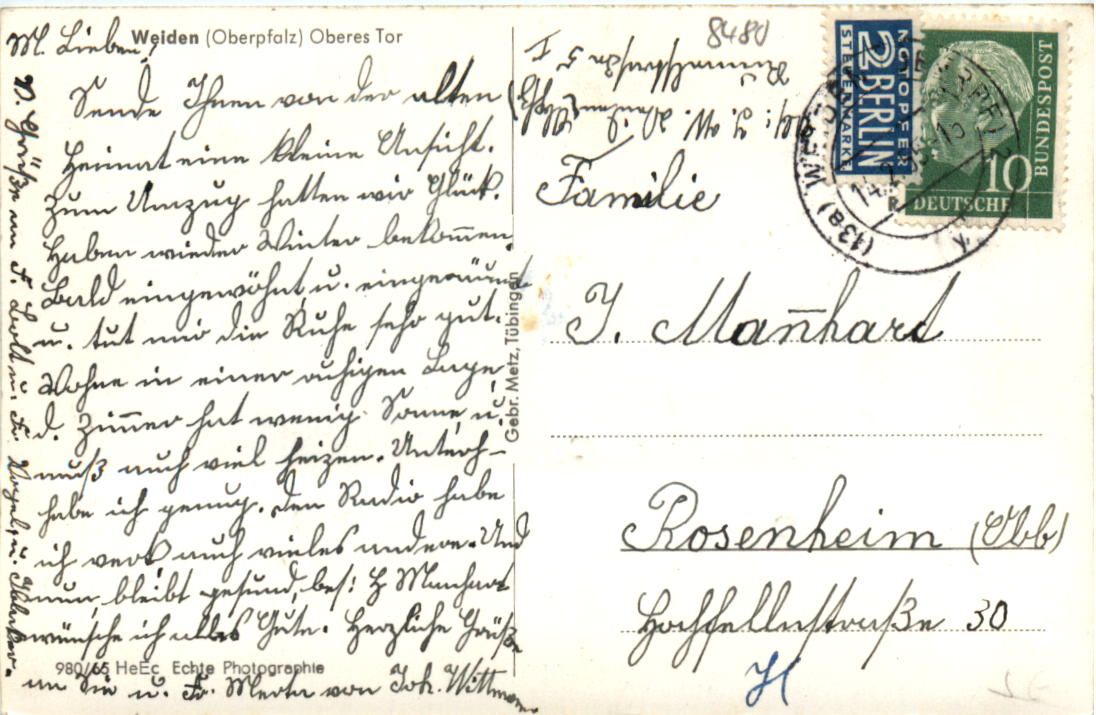 Weiden (Oberpfalz) Oberes Tor
M. Lieben!
Sende Ihnen von der alten
Heimat eine kleine Ansicht.
Zum Umzug hatten wir Glück.
Haben wieder Winter bekommen.
Bald eingewöhnt u. eingeräumt
u. tut mir die Ruhe sehr gut.
Wohne in einer ruhigen Lage
d. Zimmer hat wenig Sonne, u.
muß auch viel heizen. Unterh-
habe ich genug. Den Radio habe
ich u. auch vieles andere. Und
nun, bleibt gesund, bes: H Manhart
wünsche ich alles Gute. Herzliche Grüße
an Sie u. Fr. Merta von Joh. Wittmann
980/65 HeEc Echte Photographie
Gebr. Metz, Tübingen
8480
NOTOPFER
2 BERLIN
STEUERMARKE
DEUTSCHE
BUNDESPOST
10
(13a) WEIDEN
Familie
J. Mañhart
Rosenheim (Obb)
Hochfellnstraße 30